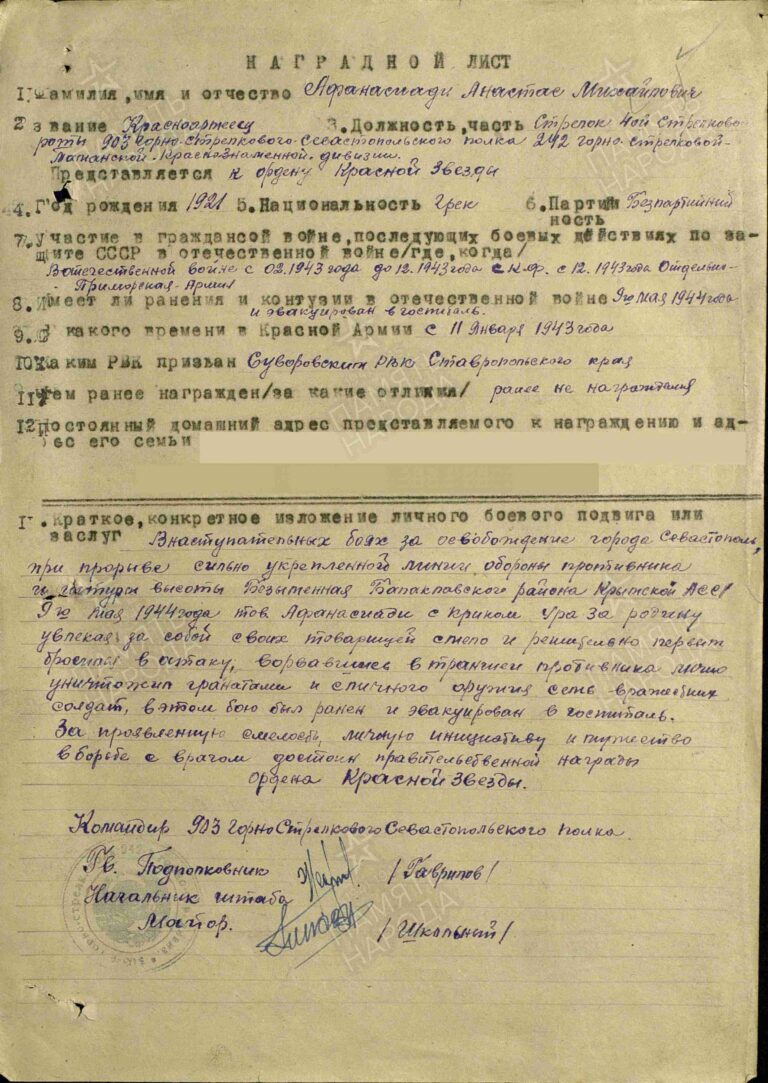 НАГРАДНОЙ ЛИСТ
1. Фамилия, имя и отчество Афанасиади Анастас Михайлович
2 звание Красноармеец 3. Должность, часть Стрелок 4ой Стрелковой
роты 903 Горно-Стрелкового-Севастопольского полка 242 горно-стрелковой-
Таманской-Краснознаменной-дивизии.
Представляется к ордену Красной Звезды
4. Год рождения 1921 5. Национальность Грек 6. Партий- Безпартийный
ность
7. Участие в граждансой войне, последующих боевых действиях по за-
щите СССР в отечественной войне/где, когда/
В отечественной войне с 02.1943 года до 12.1943 года С.К.Ф. с 12.1943 года Отдельно-
Приморская-Армия
8. Имеет ли ранения и контузии в отечественной войне 9го мая 1944 года
и эвакуирован в госпиталь.
9. С какого времени в Красной Армии с 11 Января 1943 года
10. Каким РВК призван Суворовским РВК Ставропольского края
11. Чем ранее награжден/за какие отличия/ ранее не награждался
12. Постоянный домашний адрес представляемого к награждению и ад-
рес его семьи
1. Краткое, конкретное изложение личного боевого подвига или
заслуг В наступательных боях за освобождение города Севастополь,
при прорыве сильно укрепленной линии обороны противника
и штурм высоты Безыменная Балаклавского района Крымской АССР
9го мая 1944 года тов Афанасиади с криком Ура За родину
увлекая за собой своих товарищей смело и решительно первым
бросился в атаку, ворвавшись в траншеи противника лично
уничтожил гранатами и с личного оружия семь вражеских
солдат, в этом бою был ранен и эвакуирован в госпиталь.
За проявленную смелость, личную инициативу и мужество
в борьбе с врагом достоин правительственной награды
ордена Красной Звезды.
Командир 903 Горно Стрелкового Севастопольского полка.
Гв. Подполковник /Гаврилов/
Начальник штаба
Майор. /Школьный/
ПАМЯТЬ НАРОДА